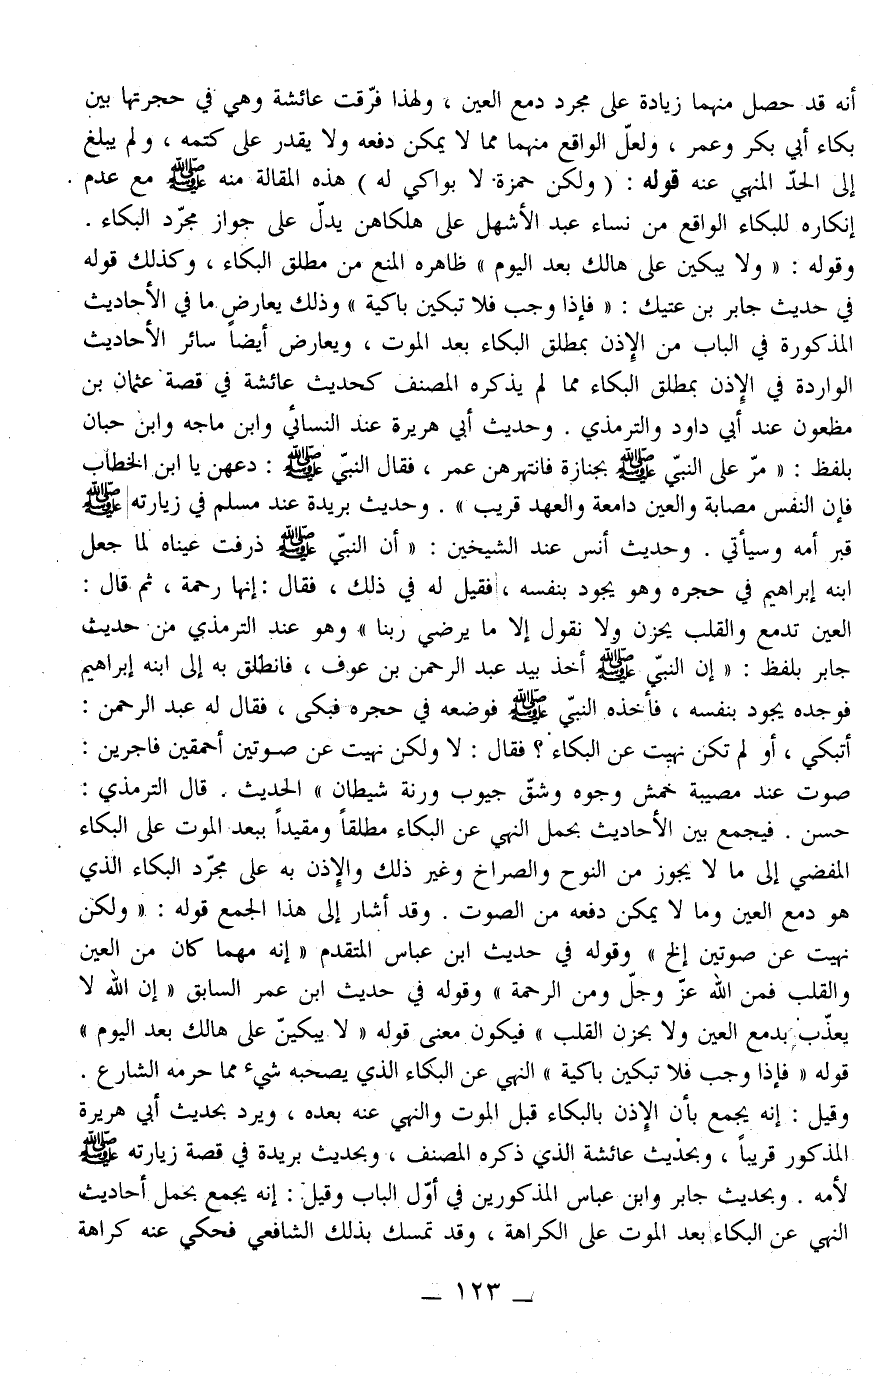 أنه قد حصل منهما زيادة على مجرد دمع العين ، ولهذا فرّقت عائشة وهي في حجرتها بين
بكاء أبي بكر وعمر ، ولعلّ الواقع منهما مما لا يمكن دفعه ولا يقدر على كتمه ، ولم يبلغ
إلى الحدّ المنهي عنه قوله : ( ولكن حمزة لا بواكي له ) هذه المقالة منه ﷺ مع عدم
إنكاره للبكاء الواقع من نساء عبد الأشهل على هلكاهن يدلّ على جواز مجرّد البكاء .
وقوله : « ولا يبكين على هالك بعد اليوم » ظاهره المنع من مطلق البكاء ، وكذلك قوله
في حديث جابر بن عتيك : « فإذا وجب فلا تبكين باكية » وذلك يعارض ما في الأحاديث
المذكورة في الباب من الإذن بمطلق البكاء بعد الموت ، ويعارض أيضاً سائر الأحاديث
الواردة في الإذن بمطلق البكاء مما لم يذكره المصنف كحديث عائشة في قصة عثمان بن
مظعون عند أبي داود والترمذي . وحديث أبي هريرة عند النسائي وابن ماجه وابن حبان
بلفظ : « مرّ على النبيّ ﷺ بجنازة فانتهرهن عمر ، فقال النبيّ ﷺ : دعهن يا ابن الخطاب
فإن النفس مصابة والعين دامعة والعهد قريب » . وحديث بريدة عند مسلم في زيارته ﷺ
قبر أمه وسيأتي . وحديث أنس عند الشيخين : « أن النبيّ ﷺ ذرفت عيناه لما جعل
ابنه إبراهيم في حجره وهو يجود بنفسه ، فقيل له في ذلك ، فقال : إنها رحمة ، ثم قال :
العين تدمع والقلب يحزن ولا نقول إلا ما يرضي ربنا » وهو عند الترمذي من حديث
جابر بلفظ : « إن النبيّ ﷺ أخذ بيد عبد الرحمن بن عوف ، فانطلق به إلى ابنه إبراهيم
فوجده يجود بنفسه ، فأخذه النبيّ ﷺ فوضعه في حجره فبكى ، فقال له عبد الرحمن :
أتبكي ، أو لم تكن نهيت عن البكاء ؟ فقال : لا ولكن نهيت عن صوتين أحمقين فاجرين :
صوت عند مصيبة خمش وجوه وشقّ جيوب ورنة شيطان » الحديث . قال الترمذي :
حسن . فيجمع بين الأحاديث بحمل النهي عن البكاء مطلقاً ومقيداً ببعد الموت على البكاء
المفضي إلى ما لا يجوز من النوح والصراخ وغير ذلك والإذن به على مجرّد البكاء الذي
هو دمع العين وما لا يمكن دفعه من الصوت . وقد أشار إلى هذا الجمع قوله : « ولكن
نهيت عن صوتين إلخ » وقوله في حديث ابن عباس المتقدم « إنه مهما كان من العين
والقلب فمن الله عزّ وجلّ ومن الرحمة » وقوله في حديث ابن عمر السابق « إن الله لا
يعذّب بدمع العين ولا بحزن القلب » فيكون معنى قوله « لا يبكينّ على هالك بعد اليوم »
قوله « فإذا وجب فلا تبكين باكية » النهي عن البكاء الذي يصحبه شيء مما حرمه الشارع .
وقيل : إنه يجمع بأن الإذن بالبكاء قبل الموت والنهي عنه بعده ، ويرد بحديث أبي هريرة
المذكور قريباً ، وبحديث عائشة الذي ذكره المصنف ، وبحديث بريدة في قصة زيارته ﷺ
لأمه . وبحديث جابر وابن عباس المذكورين في أوّل الباب وقيل : إنه يجمع بحمل أحاديث
النهي عن البكاء بعد الموت على الكراهة ، وقد تمسك بذلك الشافعي فحكي عنه كراهة
— ١٢٣ —